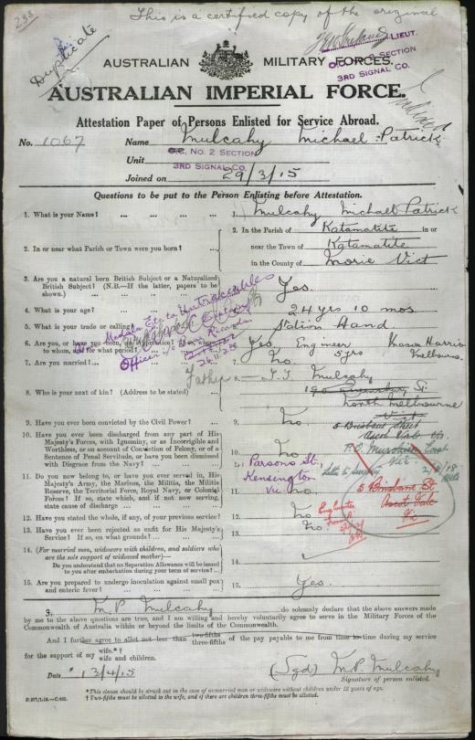 293
This is a certified copy of the original
Duplicate
LIEUT.
O.C. No. 2 SECTION
3RD SIGNAL CO.
AUSTRALIAN MILITARY FORCES.
AUSTRALIAN IMPERIAL FORCE.
Attestation Paper of Persons Enlisted for Service Abroad.
No. 1067 Name Mulcahy Michael Patrick
Unit O.C. No. 2 SECTION
3RD SIGNAL CO.
Joined on 29/3/15
Questions to be put to the Person Enlisting before Attestation.
1. What is your Name? ... 1. Mulcahy Michael Patrick
2. In or near what Parish or Town were you born? ... 2. In the Parish of Katamatite in or
near the Town of Katamatite
in the County of Moric Vict
3. Are you a natural born British Subject or a Naturalised
British Subject? (N.B.—If the latter, papers to be
shown.) Yes.
4. What is your age? 24 yrs 10 mos.
5. What is your trade or calling? Station Hand
6. Are you, or have you been, an Apprentice? If so,
to whom, and for what period? Yes, Engineer
5 yrs
7. Are you married? ... No
8. Who is your next of kin? (Address to be stated) Father - Mulcahy
St
North Melbourne
Vict
9. Have you ever been convicted by the Civil Power? ... 9. No
10. Have you ever been discharged from any part of His
Majesty's Forces, with Ignominy, or as Incorrigible and
Worthless, or on account of Conviction of Felony, or of a
Sentence of Penal Servitude, or have you been dismissed
with Disgrace from the Navy? 10. No
Parsons St,
Kensington
Vic
11. Do you now belong to, or have you ever served in, His
Majesty's Army, the Marines, the Militia, the Militia
Reserve, the Territorial Force, Royal Navy, or Colonial
Forces? If so, state which, and if not now serving,
state cause of discharge 11. No
5 Brisbane St
Ascot Vale
Vic
12. Have you stated the whole, if any, of your previous service? 12.
13. Have you ever been rejected as unfit for His Majesty's
Service? If so, on what grounds? 13. No
14. (For married men, widowers with children, and soldiers who
are the sole support of widowed mother—
Do you understand that no Separation Allowance will be issued
to you after embarkation during your term of service? 14.
15. Are you prepared to undergo inoculation against small pox
and enteric fever? 15. Yes.
I, M. P. Mulcahy do solemnly declare that the above answers made
by me to the above questions are true, and I am willing and hereby voluntarily agree to serve in the Military Forces of the
Commonwealth of Australia within or beyond the limits of the Commonwealth.
And I further agree to allot not less than two-fifths
three-fifths of the pay payable to me from time to time during my service
for the support of my wife.*†
wife and children.
Date 13/4/15 (Sgd) M.P. Mulcahy
Signature of person enlisted.
*This clause should be struck out in the case of unmarried men or widowers without children under 18 years of age.
†Two-fifths must be allotted to the wife, and if there are children three-fifths must be allotted.